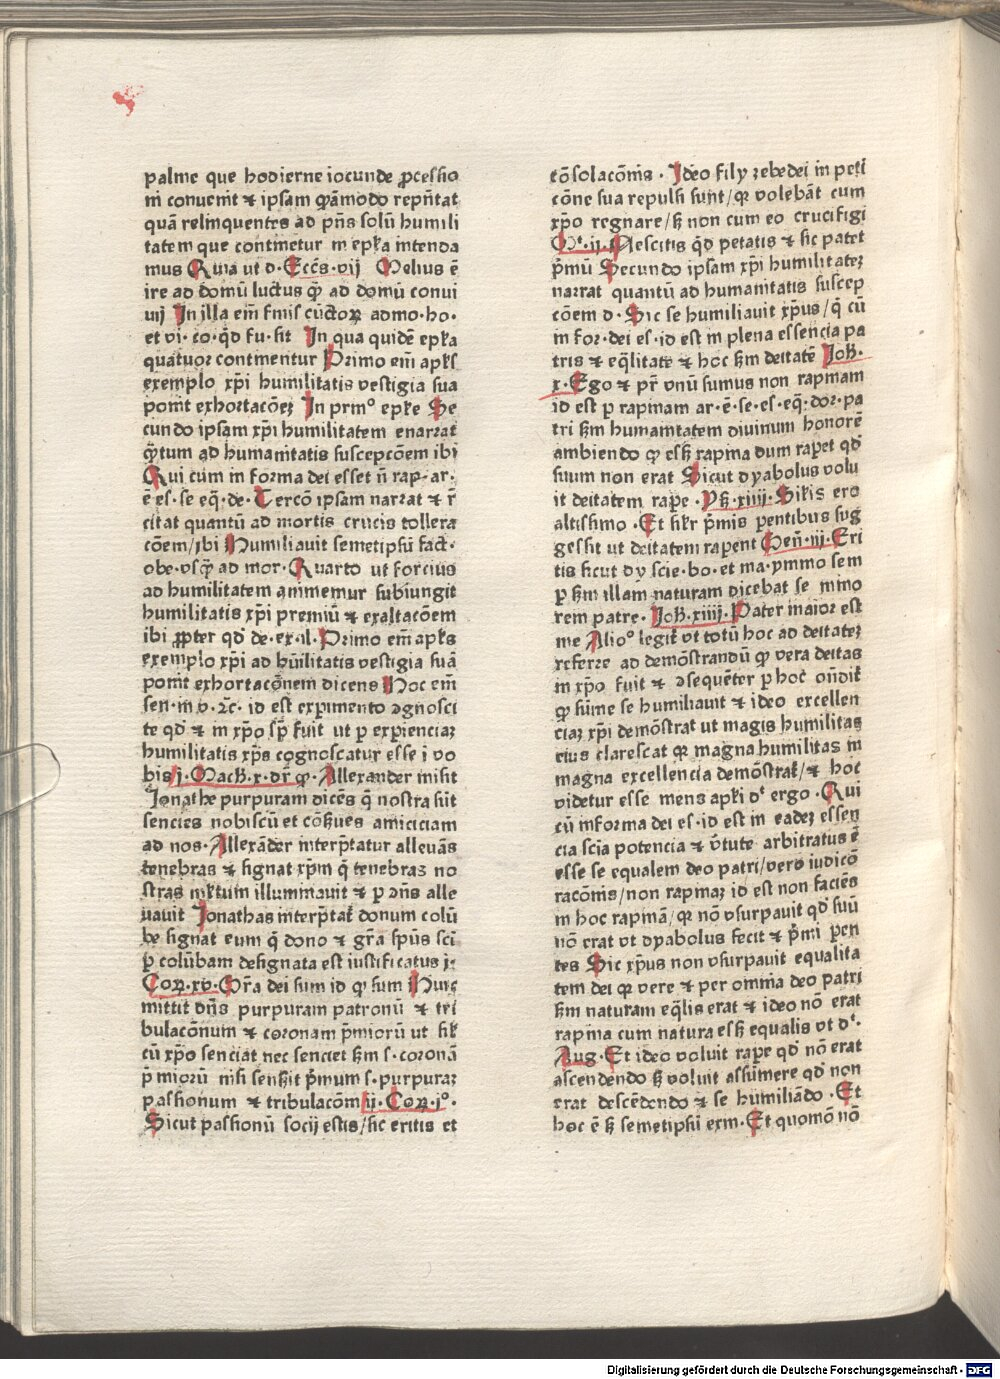 palme que hodierne iocunde ꝓcessio
ni conuenit ⁊ ipsam quāmodo rep̄ntat
quā relinquentes ad p̄ns solū humili
tatem que continetur in ep̄la intenda
mus Quia ut d. Eccēs. vij Melius ē
ire ad domū luctus ꝙ̄ ad domū conui
uij In illa em̄ finis cūctoꝝ admo. ho.
et vi. co. qd̄ fu. sit In qua quidē ep̄la
quatuor continentur Primo em̄ apl̄s
exemplo xp̄i humilitatis vestigia sua
ponit exhortacōeꝫ In prinº ep̄le Se
cundo ipsam xp̄i humilitatem enarrat
ꝙ̄tum ad humanitatis suscepcōem ibi
Qui cum in forma dei esset n̄ rap. ar.
ē es. se eq̄. de. Tercō ipsam narrat ⁊ r̄
citat quantū ad mortis crucis tollera
cōem/ibi Humiliauit semetipsū fact.
obe. vsꝙ̄ ad mor. Quarto ut forcius
ad humilitatem animemur subiungit
humilitatis xp̄i premiū ⁊ exaltacōem
ibi ꝓpter qd̄ de. ex. il. Primo em̄ apl̄s
exemplo xp̄i ad hūilitatis vestigia suā
ponit exhortacōnem dicens Hoc em̄
sen. in v. ⁊c̄. id est exꝑimento ꝯgnosci
te qd̄ ⁊ in xp̄o sp̄ fuit ut ꝑ exꝑienciaꝫ
humilitatis xp̄s cognoscatur esse i vo
bis j. Mach. x. dr̄ ꝙ. Allexander misit
Jonathe purpuram dicēs q̄ nostra sūt
sencies nobiscū et cōsẜues amiciciam
ad nos. Allexāder interp̄tatur alleuās
tenebras ⁊ signat xp̄m q̄ tenebras no
stras nr̄ktuin illuminauit ⁊ ꝑ ꝯn̄s alle
uauit Jonathas interp̄tat᷑ donum colū
be signat eum q̄ dono ⁊ gr̄a sp̄us sc̄i
ꝑ colūbam designata est iustificatus j.
Coꝝ. xv. Gr̄a dei sum id ꝙ sum Huic
mittit dn̄s purpuram patronū ⁊ tri
bulacōnum ⁊ coronam p̄miorū ut sic̄
cū xp̄o senciat nec senciet ẜm s. coronā
p̄miorū nisi sensẜit p̄mum s. purpuraꝫ
passionum ⁊ tribulacōni ij. Coꝝ. jº.
Sicut passionū socij estis/sic eritis et
cōsolacōnis. Ideo filij zebedei in peti
cōne sua repulsi sunt/ꝙ volebāt cum
xp̄o regnare/ẜ non cum eo crucifigi
Mᵗ. ij. Nescitis qd̄ petatis ⁊ sic patet
p̄mū Secundo ipsam xp̄i humilitateꝫ
narrat quantū ad humanitatis suscep
cōem d. Sic se humiliauit xp̄us/q̄ cū
in for. dei es. id est in plena essencia pa
tris ⁊ eq̄litate ⁊ hoc ẜm deitatē Joh̄.
x. Ego ⁊ pr̄ vnū sumus non rapinam
id est ꝑ rapinam ar. ē. se. es. eq̄. dor. pa
tri ẜm humanitatem diuinum honorē
ambiendo ꝙ esẜ rapina dum rapet qd̄
suum non erat Sicut dyabolus volu
it deitatem raꝑe. Pẜ. xiiij. Sikis ero
altissimo. Et silr̄ p̄mis ꝑentibus sug
gessit ut deitatem raꝑent Gen̄. iij. Eri
tis sicut dy scie. bo. et ma. ymmo sem
ꝑ ẜm illam naturam dicebat se mino
rem patre. Joh̄. xiiij. Pater maior est
me Alioº legit᷑ vt totū hoc ad deitateꝫ
referre ad demōstrandū ꝙ vera deitas
in xp̄o fuit ⁊ ꝯsequēter ꝑ hoc on̄dit᷑
ꝙ sūme se humiliauit ⁊ ideo excellen
ciaꝫ xp̄i demōstrat ut magis humilitas
eius clarescat ꝙ magna humilitas in
magna excellencia demōstrat᷑/⁊ hoc
videtur esse mens apl̄i dᵗ ergo. Qui
cū in forma dei es. id est in eadeꝫ essen
cia scia potencia ⁊ v̄tute arbitratus ē
esse se equalem deo patri/vero iudicō
racōnis/non rapinaꝫ id est non faciēs
in hoc rapinā/ꝙ nō vsurpauit qd̄ suū
nō erat vt dyabolus fecit ⁊ p̄mi ꝑen
tes Sic xp̄us non vsurpauit equalita
tem dei ꝙ vere ⁊ per omnia deo patri
ẜm naturam eq̄lis erat ⁊ ideo nō erat
rapina cum natura esẜ equalis vt dᵗ.
Aug. Et ideo voluit raꝑe qd̄ nō erat
ascendendo ẜ voluit assūmere qd̄ non
erat descēdendo ⁊ se humiliādo. Et
hoc ē ẜ semetipsū exin. Et quomō nō
Digitalisierung gefördert durch die Deutsche Forschungsgemeinschaft - DFG